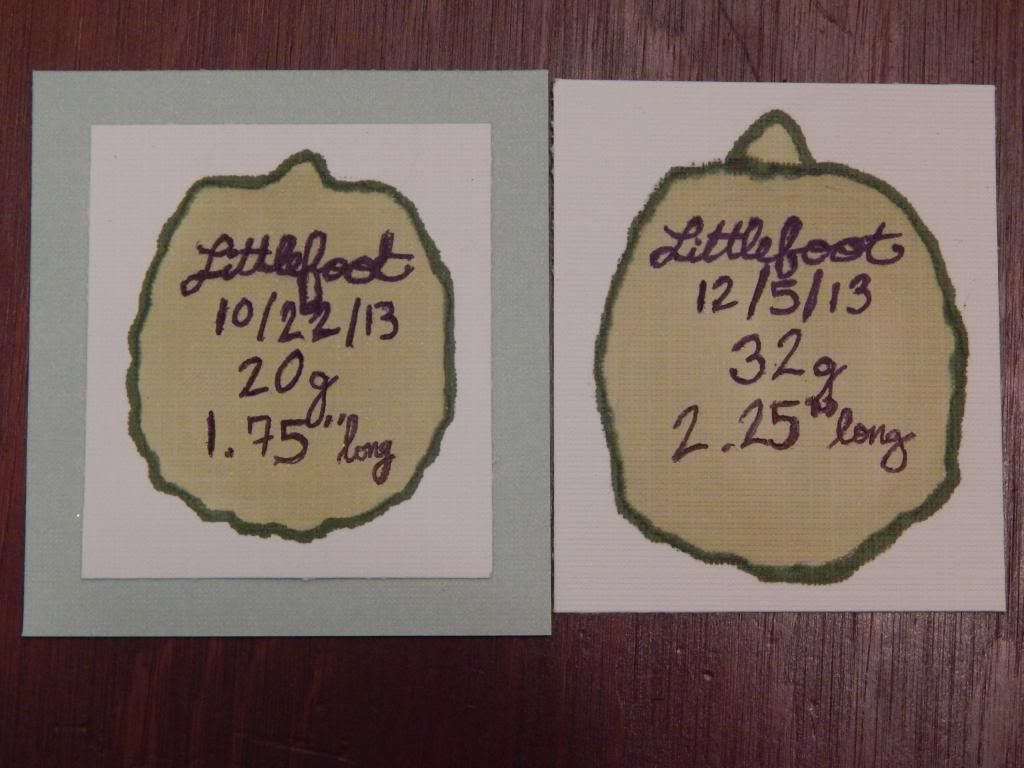 Littlefoot
10/22/13
20g
1.75" long
Littlefoot
12/5/13
32g
2.25" long